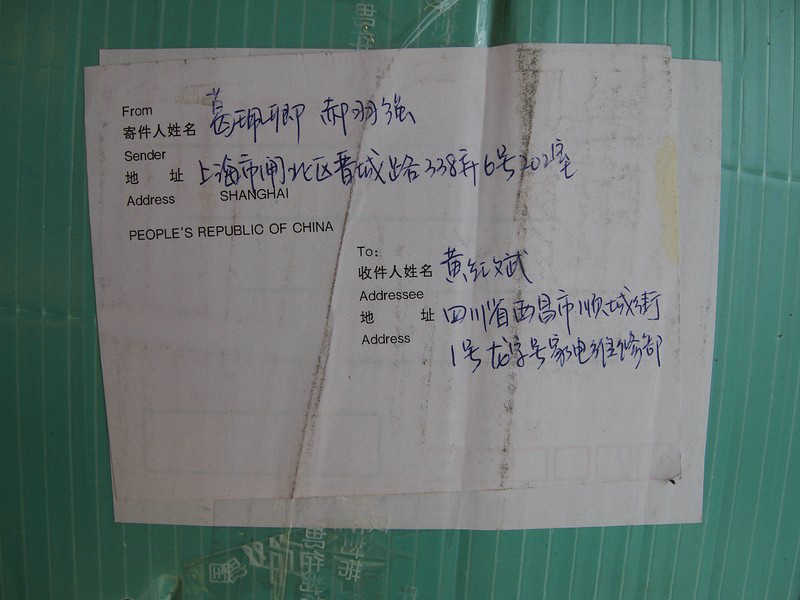 From
寄件人姓名 葛珊卿 郝羽强
Sender
地 址 上海市闸北区晋城路338弄6号202室
Address SHANGHAI
PEOPLE'S REPUBLIC OF CHINA
To:
收件人姓名 黄红斌
Addressee
地 址 四川省西昌市顺城街
Address 1号 龙字号家电维修部